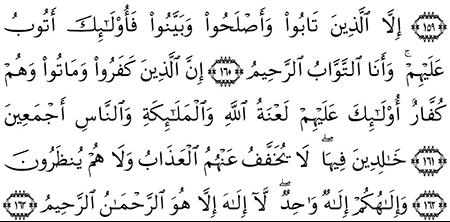 ﴿١٥٩﴾ إِلَّا ٱلَّذِينَ تَابُوا۟ وَأَصْلَحُوا۟ وَبَيَّنُوا۟ فَأُو۟لَـٰٓئِكَ أَتُوبُ
عَلَيْهِمْ ۚ وَأَنَا ٱلتَّوَّابُ ٱلرَّحِيمُ ﴿١٦٠﴾ إِنَّ ٱلَّذِينَ كَفَرُوا۟ وَمَاتُوا۟ وَهُمْ
كُفَّارٌ أُو۟لَـٰٓئِكَ عَلَيْهِمْ لَعْنَةُ ٱللَّهِ وَٱلْمَلَـٰٓئِكَةِ وَٱلنَّاسِ أَجْمَعِينَ
﴿١٦١﴾ خَـٰلِدِينَ فِيهَا ۖ لَا يُخَفَّفُ عَنْهُمُ ٱلْعَذَابُ وَلَا هُمْ يُنظَرُونَ
﴿١٦٢﴾ وَإِلَـٰهُكُمْ إِلَـٰهٌ وَٰحِدٌ ۖ لَّآ إِلَـٰهَ إِلَّا هُوَ ٱلرَّحْمَـٰنُ ٱلرَّحِيمُ ﴿١٦٣﴾